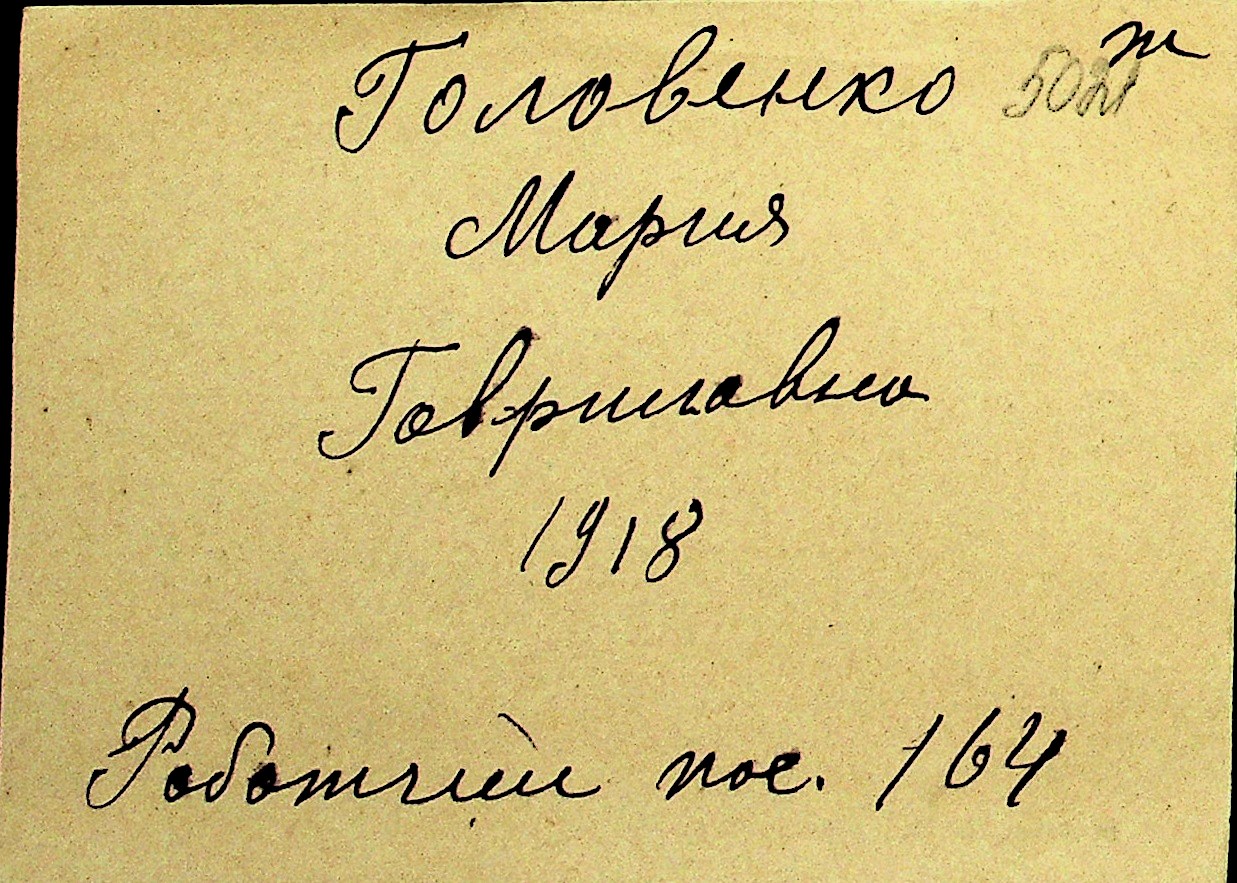 Головенко
Мария
Гавриловна
1918
Работчий пос. 164